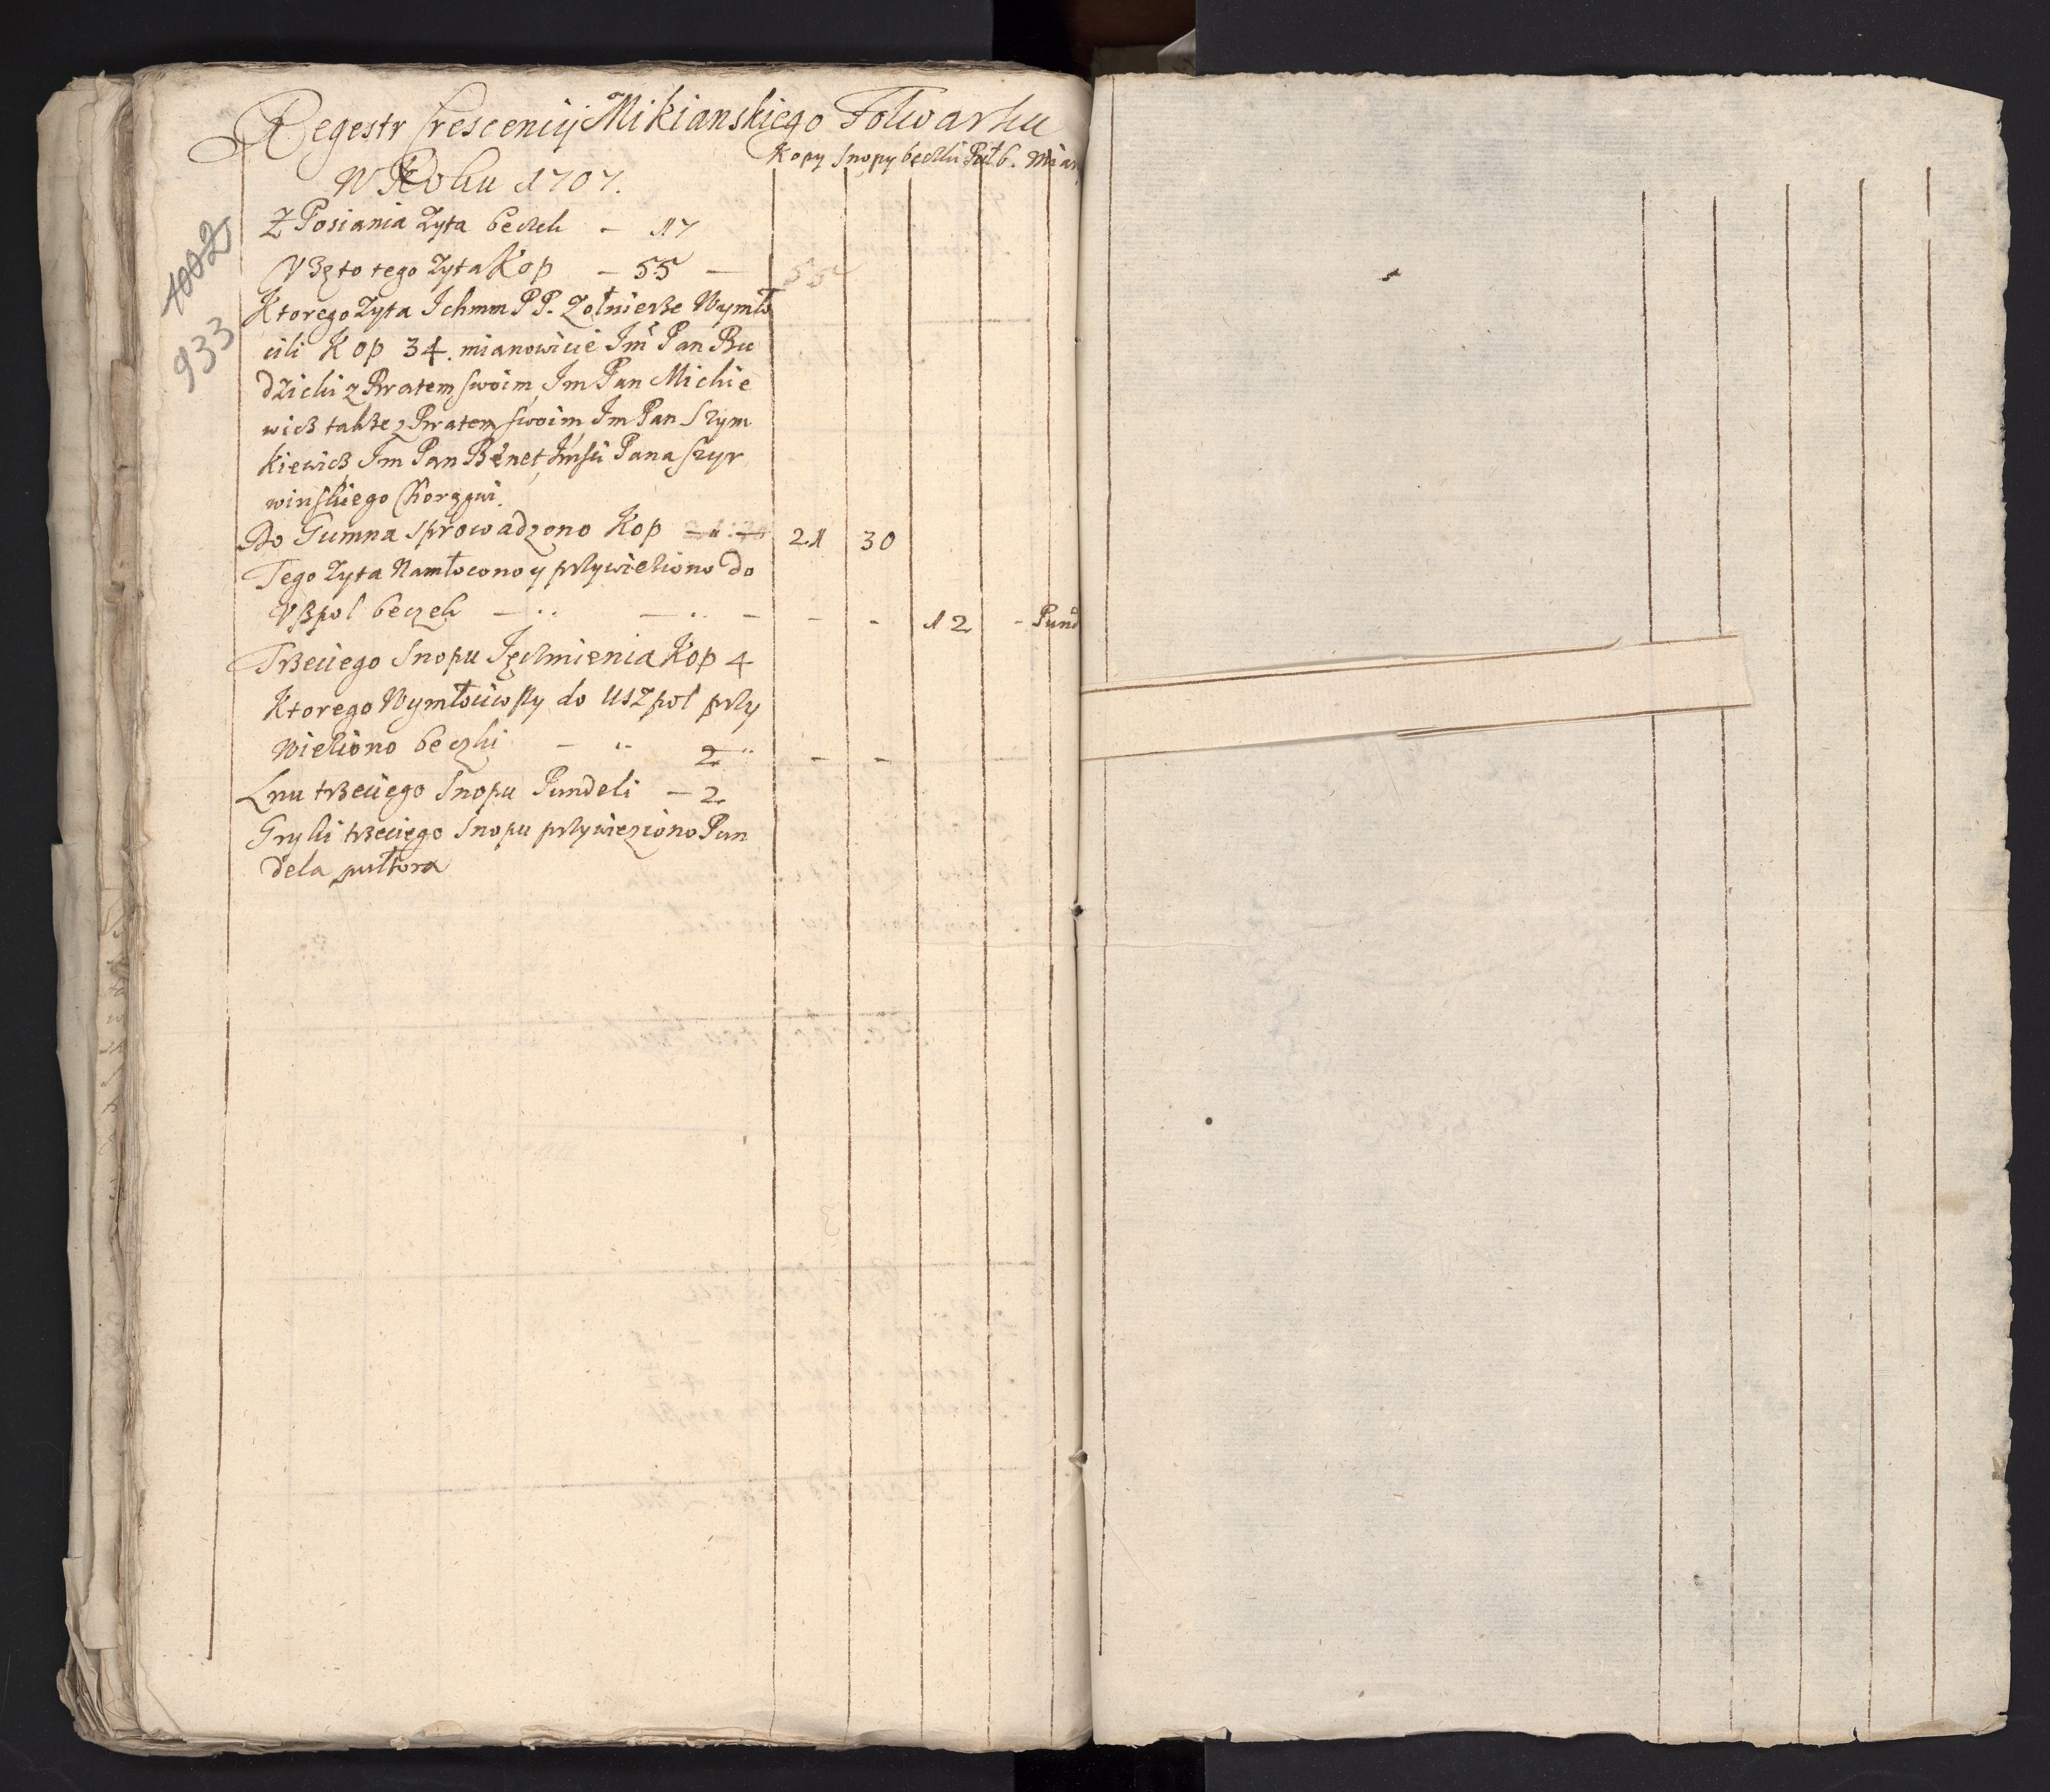 Regestr Crescenciy Mikianskiego Folwarku
Kopy Snopy beczki Pułb. Miar
W Roku 1707.
1002
933
Z Posiania Zyta beczek – 17
Vżęto tego Zyta Kop – 55 – 55
Ktorego Zyta Ichmm PP. Zołnierze Wymło
cili Kop 34. mianowicie Im Pan Bu
dzicki z Bratem swoim, Im Pan Mickie
wicz także z Bratem swoim Im Pan Szym
kiewicz Im Pan Benet, Pana Szyr
winskiego Chorągwi.
Do Gumna sprowadzono Kop 21 30
Tego Zyta Namłocono y przywieziono do
Vszpol beczek – .. – .. – - - 12 - Pund
Trzeciego Snopu Jęczmienia Kop 4
Ktorego Wymłociwszy do Uszpol przy
wieziono beczki – .. 2 .. - -
Lnu trzeciego Snopu Pundeli – 2
Gryki trzeciego Snopu przywieziono Pun
dela pułtora